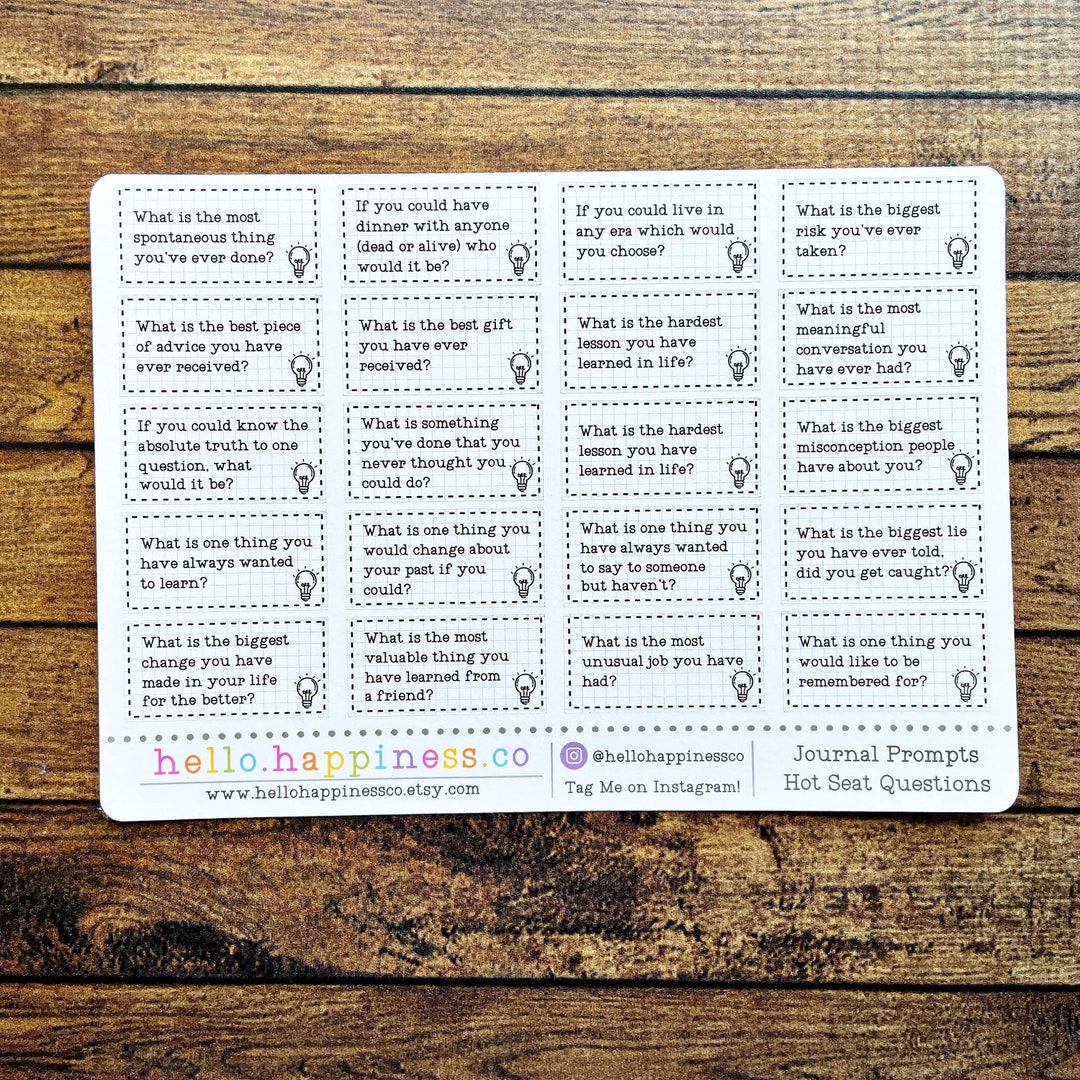 What is the most
spontaneous thing
you've ever done?
If you could have
dinner with anyone
(dead or alive) who
would it be?
If you could live in
any era which would
you choose?
What is the biggest
risk you've ever
taken?
What is the best piece
of advice you have
ever received?
What is the best gift
you have ever
received?
What is the hardest
lesson you have
learned in life?
What is the most
meaningful
conversation you
have ever had?
If you could know the
absolute truth to one
question, what
would it be?
What is something
you've done that you
never thought you
could do?
What is the hardest
lesson you have
learned in life?
What is the biggest
misconception people
have about you?
What is one thing you
have always wanted
to learn?
What is one thing you
would change about
your past if you
could?
What is one thing you
have always wanted
to say to someone
but haven't?
What is the biggest lie
you have ever told,
did you get caught?
What is the biggest
change you have
made in your life
for the better?
What is the most
valuable thing you
have learned from
a friend?
What is the most
unusual job you have
had?
What is one thing you
would like to be
remembered for?
hello.happiness.co
www.hellohappinessco.etsy.com
@hellohappinessco
Tag Me on Instagram!
Journal Prompts
Hot Seat Questions